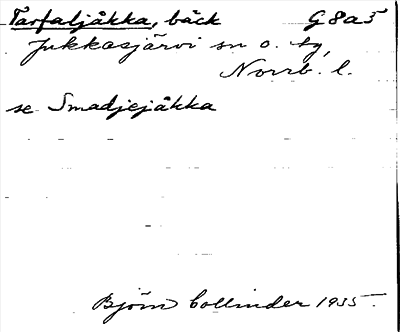 Tarfaljåkka, bäck G8a5
Jukkasjärvi sn o. tg,
Norrb. l.
se Smadjejåkka
Björn Collinder 1935.